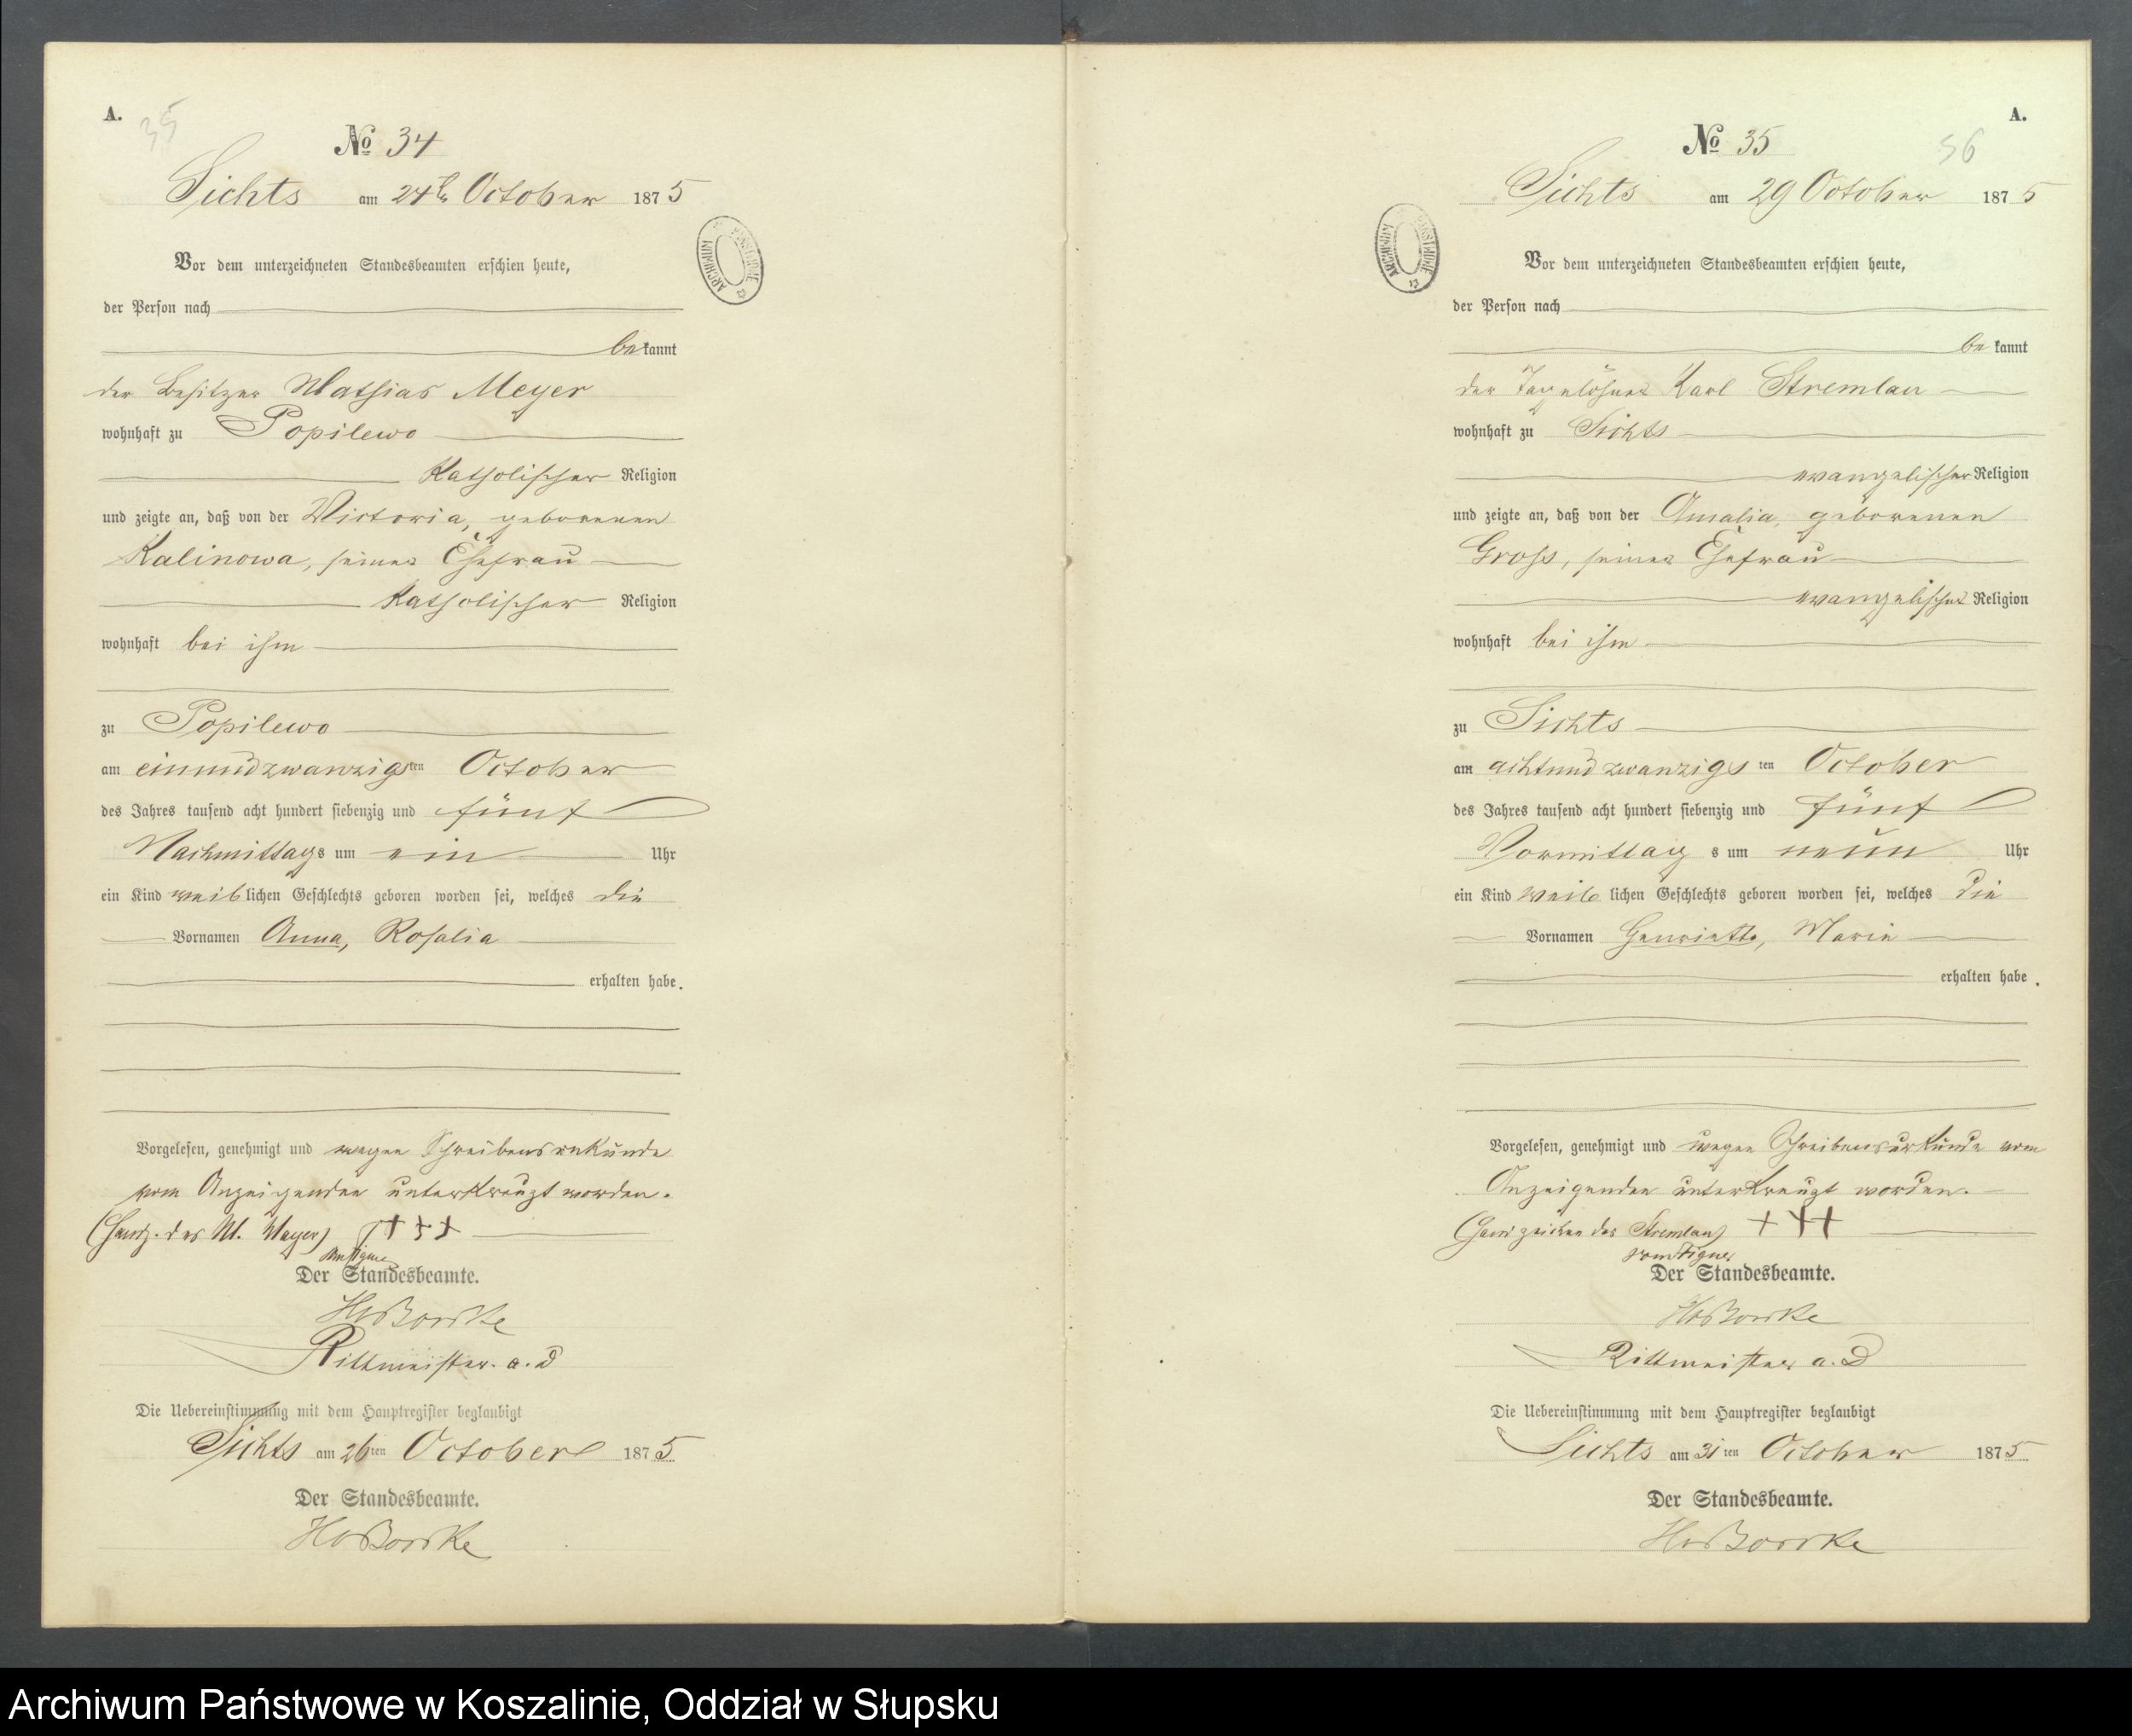 A.
35
No 34
Sichts am 24th October 1875
Vor dem unterzeichneten Standesbeamten erschien heute,
der Person nach
bekannt
der Besitzer Mathias Meyer
wohnhaft zu Popilewo
Katholischer Religion
und zeigte an, daß von der Victoria, geborenen
Kalinowa, seiner Ehefrau
Katholischer Religion
wohnhaft bei ihm
zu Popilewo
am einundzwanzigsten October
des Jahres tausend acht hundert siebenzig und fünf
Nachmittags um ein Uhr
ein Kind weiblichen Geschlechts geboren worden sei, welches die
Vornamen Anna, Rosalia
erhalten habe.
Vorgelesen, genehmigt und wegen Schreibensunkunde
vom Anzeigenden unterkreuzt worden.
(Handz. des M. Mayer) +++
Der Standesbeamte.
HvBorcke
Rittmeister a. D
Die Uebereinstimmung mit dem Hauptregister beglaubigt
Sichts am 26ten October 1875
Der Standesbeamte.
HvBorcke
ARCHIWUM PAŃSTWOWE
A.
36
No 35
Sichts am 29 October 1875
Vor dem unterzeichneten Standesbeamten erschien heute,
der Person nach
bekannt
der Tagelöhner Karl Stremlau
wohnhaft zu Sichts
evangelischer Religion
und zeigte an, daß von der Amalia, geborenen
Gross, seiner Ehefrau
evangelischer Religion
wohnhaft bei ihm
zu Sichts
am achtundzwanzigsten October
des Jahres tausend acht hundert siebenzig und fünf
Vormittags um neun Uhr
ein Kind weiblichen Geschlechts geboren worden sei, welches die
Vornamen Henriette, Marie
erhalten habe.
Vorgelesen, genehmigt und wegen Schreibensunkunde vom
Anzeigenden unterkreuzt worden.
(Handzeichen des Stremlau) +++
Der Standesbeamte.
HvBorcke
Rittmeister a. D
Die Uebereinstimmung mit dem Hauptregister beglaubigt
Sichts am 31ten October 1875
Der Standesbeamte.
HvBorcke
ARCHIWUM PAŃSTWOWE
Archiwum Państwowe w Koszalinie, Oddział w Słupsku